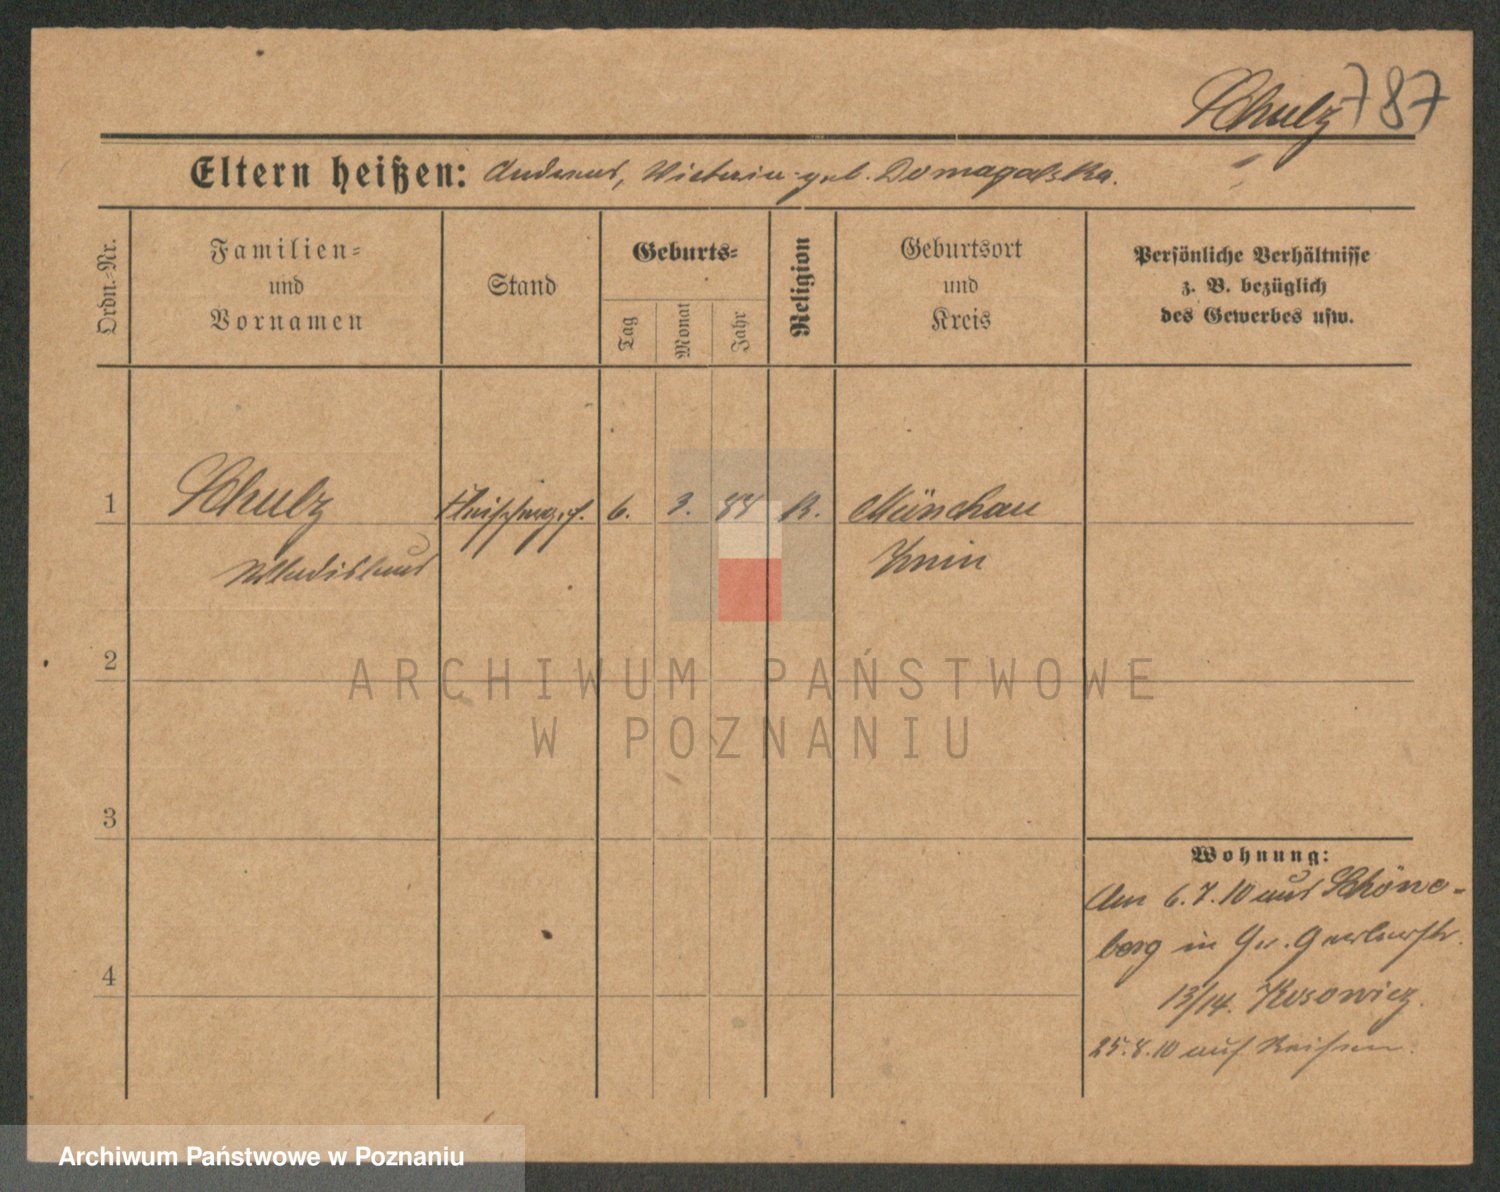 Schulz 787
Eltern heißen: Andreas, Victoria geb. Domagalska.
Ordn.-Nr.
Familien-
und
Vornamen
Stand
Geburts-
Tag
Monat
Jahr
Religion
Geburtsort
und
Kreis
Persönliche Verhältnisse
z. B. bezüglich
des Gewerbes usw.
1 Schulz Fleischerges. 6. 3. 88 K. Münchau
Wladislaus Znin
2
3
4
Wohnung:
Am 6.7.10 aus Schöne-
berg in Gr. Gerberstr.
13/14. Kosowicz.
25.8.10 auf Reisen.
ARCHIWUM PAŃSTWOWE
W POZNANIU
Archiwum Państwowe w Poznaniu